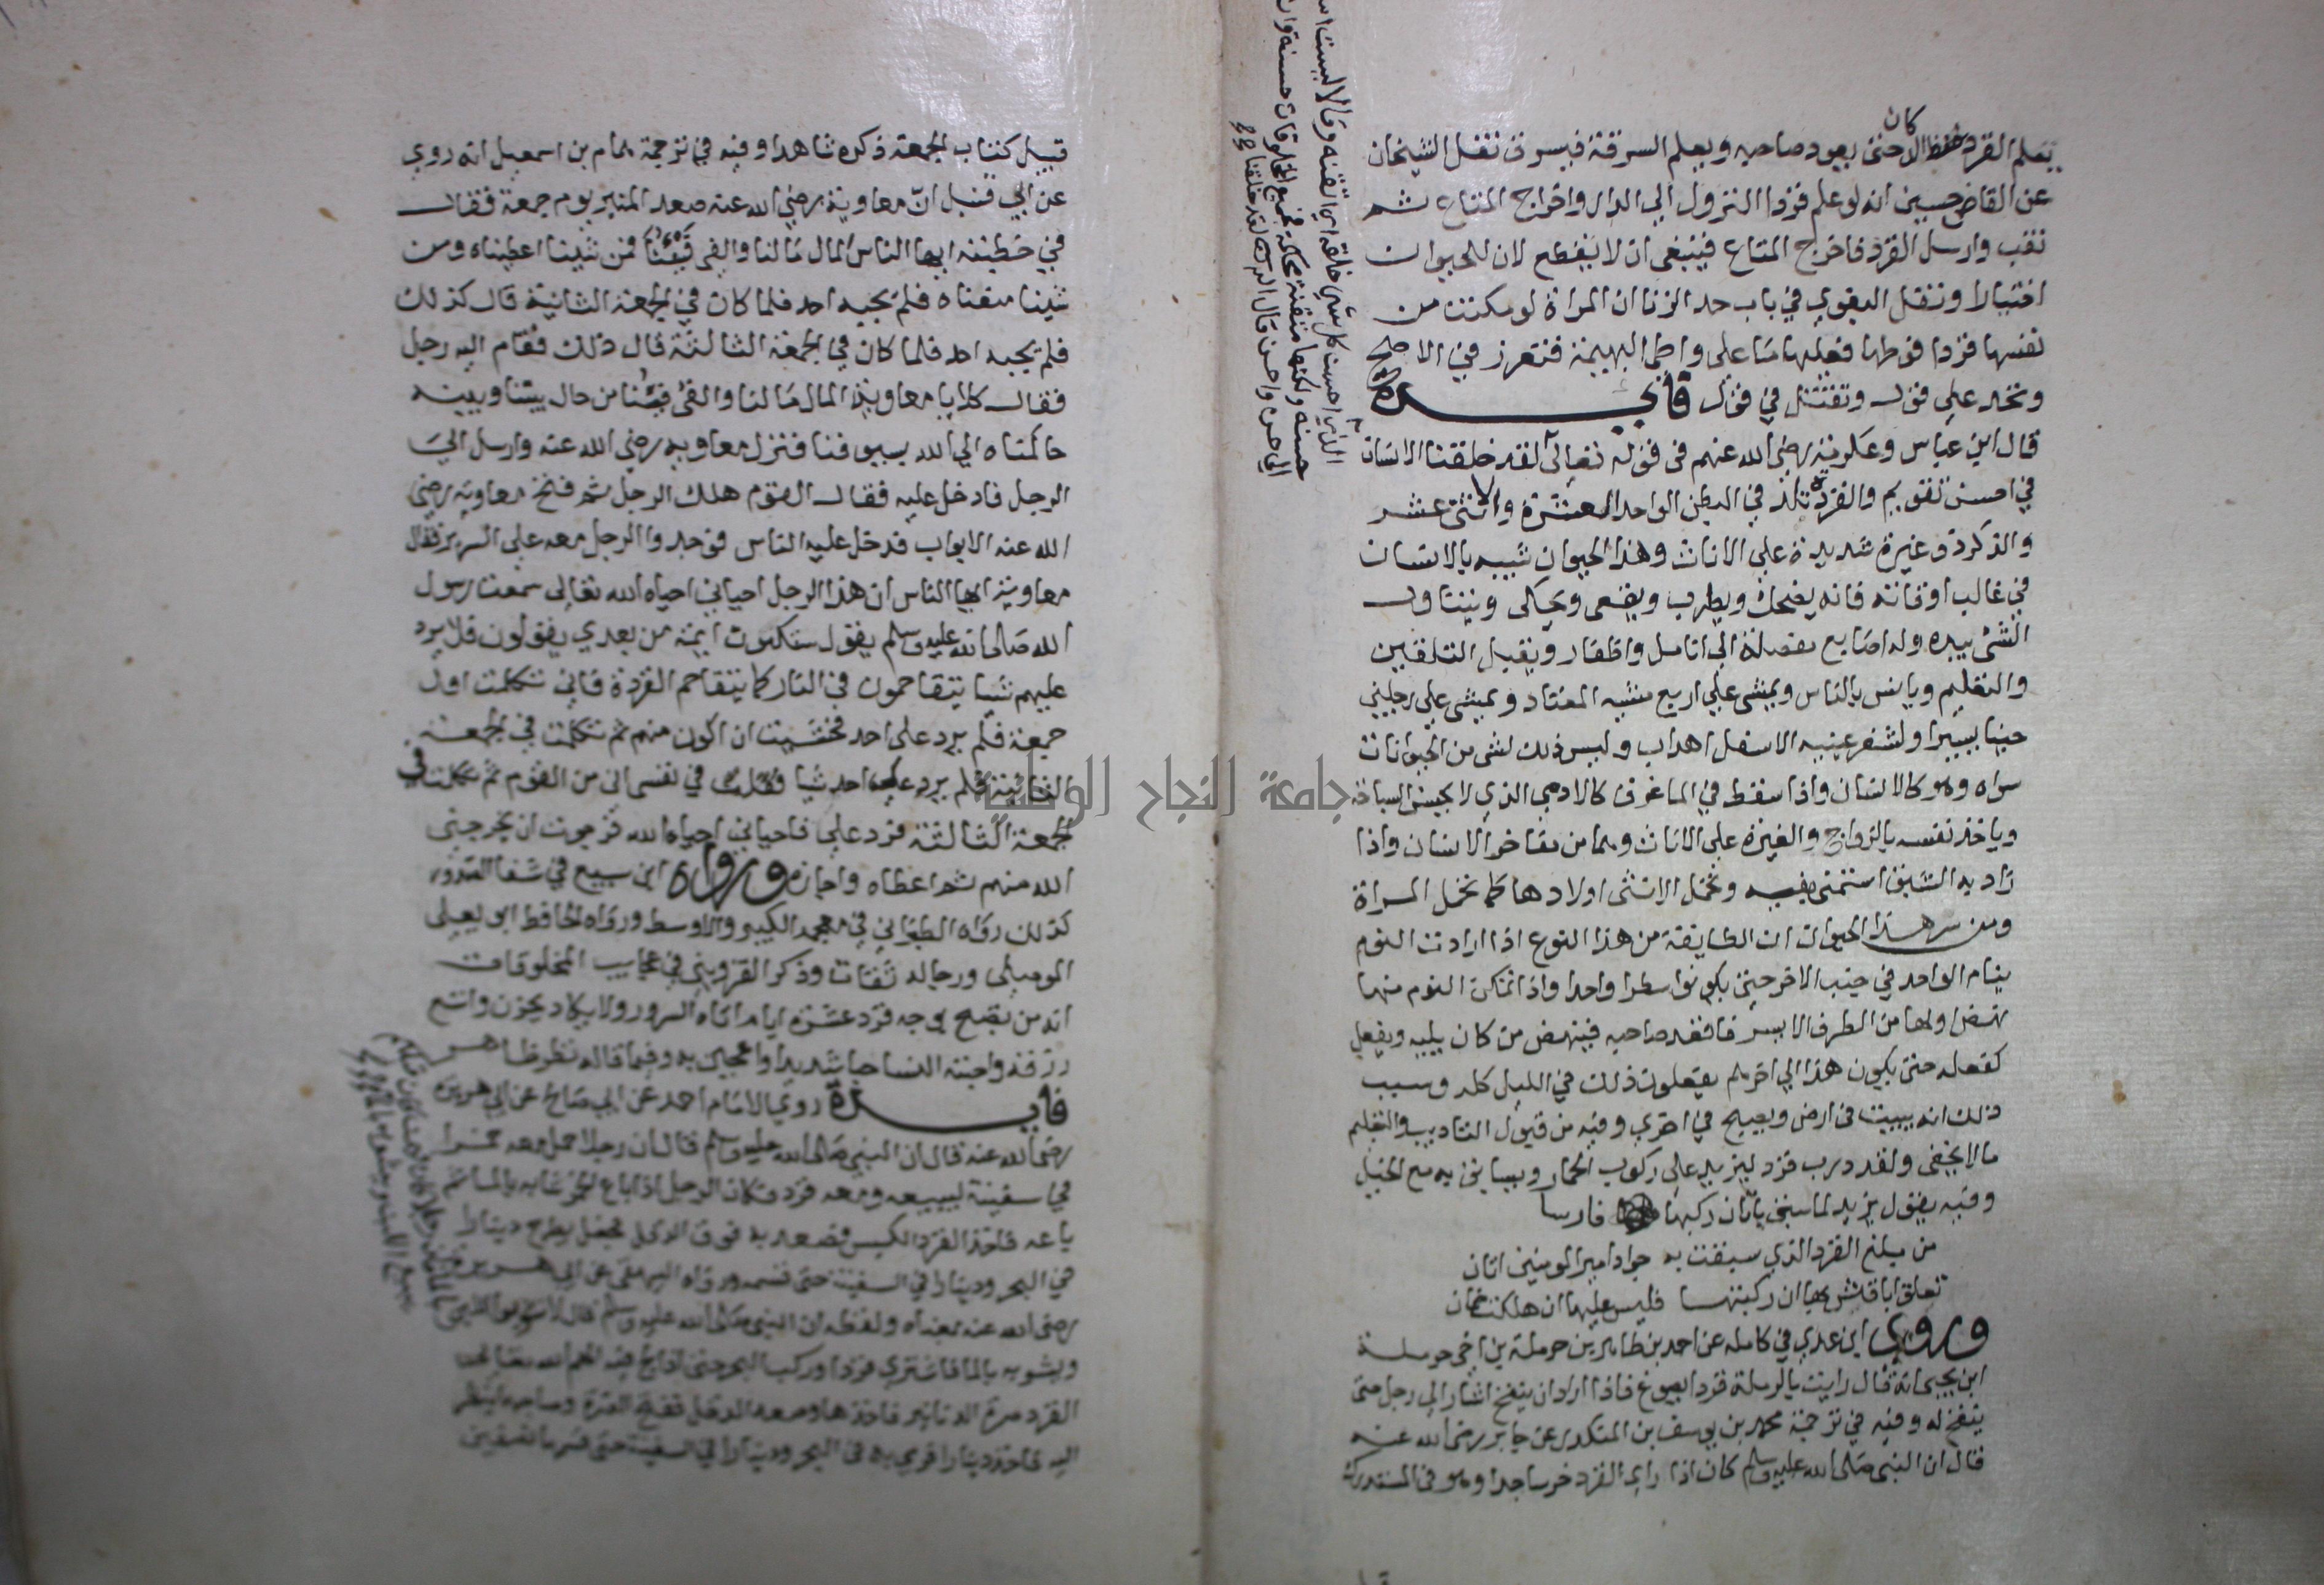 كان
يعلم القرد حفظ الدكان حتى يعود صاحبه ويعلم السرقة فيسرق نقل الشيخان
عن القاضي حسين انه لو علم قردا النزول الي الدار واخراج المتاع ثم
نقب وارسل القرد فاخرج المتاع فينبغي ان لا يقطع لان للحيوان
اختيارا ونقل البغوي في باب حد الزنا ان المراة لو مكنت من
نفسها قردا فوطها فعليها ما على واطي البهيمة فتعزر في الاصح
وتحد علي قول وتقتل في قول فايدة
قال ابن عباس وعكرمة رضي الله عنهم في قوله تعالى لقد خلقنا الانسان
في احسن تقويم والقردة تلد في البطن الواحد العشرة والاثني عشر
والذكر ذو غيرة شديدة علي الاناث وهذا الحيوان شبيه بالانسان
في غالب اوقاته فانه يضحك ويطرب ويقعى ويحكى ويتناول
الشي بيده وله اصابع مفصلة الي انامل واظفار ويقبل التلقين
والتعليم ويانس بالناس ويمشي علي اربع مشيه المعتاد ويمشي علي رجليه
حينا يسيرا ولشفر عينيه الاسفل اهداب وليس ذلك لشي من الحيوانات
سواه وهو كالانسان واذا سقط في الما غرق كالادمي الذي لا يحسن السباحة
وياخذ نفسه بالزواج والغيرة علي الاناث وهما من مفاخر الانسان واذا
زاد به الشبق استمنى بفيه وتحمل الانثى اولادها كما تحمل المراة
ومن سر هذا الحيوان ان الطايفة من هذا النوع اذا ارادت النوم
ينام الواحد في جنب الاخر حتى يكونوا سطرا واحدا واذا تمكن النوم منها
نهض اولها من الطرف الايسر فاقعد صاحبه فينهض من كان يليه ويفعل
كفعله حتى يكون هذا الي اخرهم يفعلون ذلك في الليل كله وسبب
ذلك انه يبيت في ارض ويصبح في اخري وفيه من قبول التاديب والتعليم
ما لا يخفى ولقد درب قرد ليزيد علي ركوب الحمار ويسابق به مع الخيل
وفيه يقول يزيد لما سبق باتان ركبها فارسا
من مبلغ القرد الذي سبقت به جواد امير المومنين اتان
تعلق ابا قشر بها ان ركبتها فليس عليها ان هلكت ضمان
وروي ابن عدي في كامله عن احمد بن طاهر بن حرملة بن اخي حرملة
ابن يحيى انه قال رايت بالرملة قردا يصوغ فاذا اراد ان ينفخ اشار الي رجل حتى
ينفخ له وفيه في ترجمة محمد بن يوسف بن المنكدر عن جابر رضي الله عنه
قال ان النبي صلى الله عليه وسلم كان اذا راي القرد خر ساجدا وهو في المستدرك
الذي احسن كل شي خلقه اي اتقنه وقال ليست
حسنه ولكنها متقنة محكمة فجميع المخلوقات حسنة وان
الي حسن واحسن قال الله لقد خلقنا
قبيل كتاب الجمعة ذكره شاهدا وفيه في ترجمة همام بن اسمعيل انه روي
عن ابي قبيل ان معاوية رضي الله عنه صعد المنبر يوم جمعة فقال
في خطبته ايها الناس المال مالنا والفي فيئنا فمن شينا اعطيناه ومن
شينا منعناه فلم يجبه احد فلما كان في الجمعة الثانية قال كذلك
فلم يجبه احد فلما كان في الجمعة الثالثة قال ذلك فقام اليه رجل
فقال كلا يا معاوية المال مالنا والفئ فيئنا من حال بيننا وبينه
حاكمناه الي الله بسيوفنا فنزل معاوية رضي الله عنه وارسل الي
الرجل فادخل عليه فقال القوم هلك الرجل ثم فتح معاوية رضي
الله عنه الابواب فدخل عليه الناس فوجدوا الرجل معه على السرير فقال
معاوية ايها الناس ان هذا الرجل احياني احياه الله تعالى سمعت رسول
الله صلى الله عليه وسلم يقول ستكون ايمة من بعدي يقولون فلا يرد
عليهم شيا يتقاحمون في النار كما يتقاحم القردة فاني تكلمت اول
جمعة فلم يرد على احد فخشيت ان اكون منهم ثم تكلمت في الجمعة
الثانية فلم يرد علي احد شيا فقلت في نفسي اني من القوم ثم تكلمت في
الجمعة الثالثة فرد علي فاحياني احياه الله فرجوت ان يخرجني
الله منهم ثم اعطاه واجازه ورواه ابن سبع في شفا الصدور
كذلك رواه الطبراني في معجمه الكبير والاوسط ورواه الحافظ ابو يعلى
الموصلي ورجاله ثقات وذكر القزويني في عجايب المخلوقات
انه من تصبح بوجه قرد عشرة ايام اتاه السرور ولا يكاد يحزن واتسع
رزقه واحبته النسا حبا شديدا واعجبن به وفيما قاله نظر ظاهر
فايدة روي الامام احمد عن ابي صالح عن ابي هريرة
رضي الله عنه قال ان النبي صلى الله عليه وسلم قال ان رجلا حمل معه خمرا
في سفينة ليبيعه ومعه قرد فكان الرجل اذا باع الخمر شابه بالما ثم
باعه فاخذ القرد الكيس فصعد به فوق الدقل فجعل يطرح دينارا
في البحر ودينارا في السفينة حتى قسمه ورواه البيهقي عن ابي هريرة
رضي الله عنه معناه ولفظه ان النبي صلى الله عليه وسلم قال
ويشوبه بالما فاشتري قردا وركب البحر حتى اذا لج فيه الهم الله تعالى
القرد صرة الدنانير فاخذها وصعد الدقل ففتح الصرة وصاحبه ينظر
اليه فاخذ دينارا فرمي به في البحر ودينارا في السفينة حتى قسمها نصفين
جامعة النجاح الوطنية